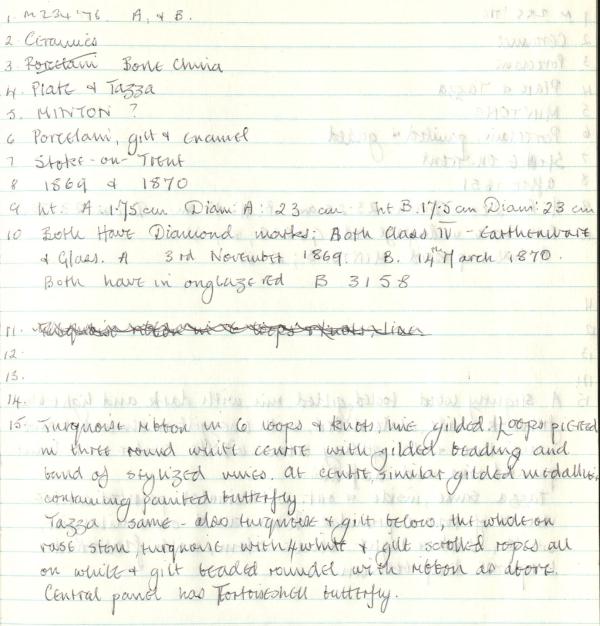 1. M234'76. A, & B.
2. Ceramics
3. Porcelain Bone China
4. Plate & Tazza
5. MINTON ?
6 Porcelain, gilt & enamel
7 Stoke-on-Trent
8 1869 & 1870
9 ht. A 1.75 cm Diam A: 23 cm ht B. 17.5 cm Diam: 23 cm
10 Both Have Diamond marks; Both Class IV - Earthenware
& Glass. A 3rd November 1869. B. 14th March 1870.
Both have in onglaze red B 3158
11.
12.
13.
14.
15. Turquoise ribbon in 6 loops & knots, line gilded. Loops pierced
in three round white centre with gilded beading and
band of stylized vines. At centre, similar gilded medallion,
containing painted butterfly
Tazza same - also turquoise & gilt below, the whole on
vase stem, turquoise with 4 white & gilt scrolled ropes all
on white & gilt beaded roundel with ribbon as above.
Central panel has Tortoiseshell butterfly.